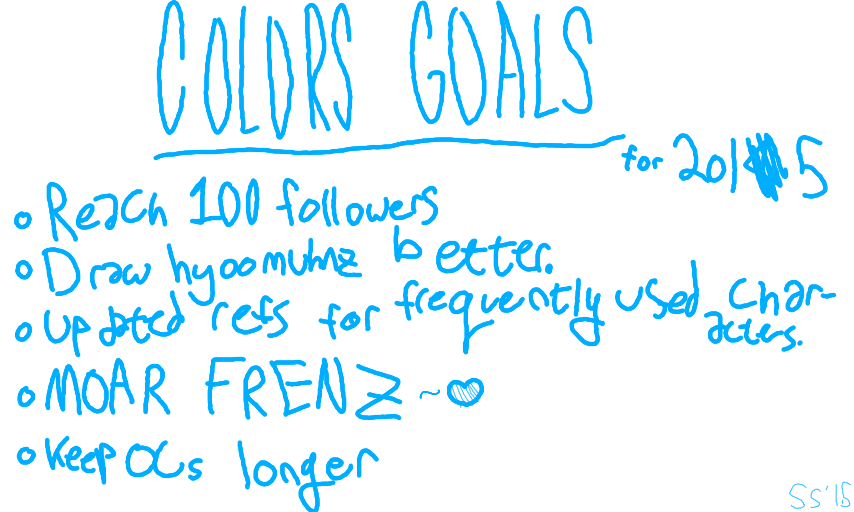 COLORS GOALS
for 2015
Reach 100 followers
Draw hyoomuhnz better.
Updated refs for frequently used char-
acters.
MOAR FRENZ ~♥
Keep OCs longer
SS'15